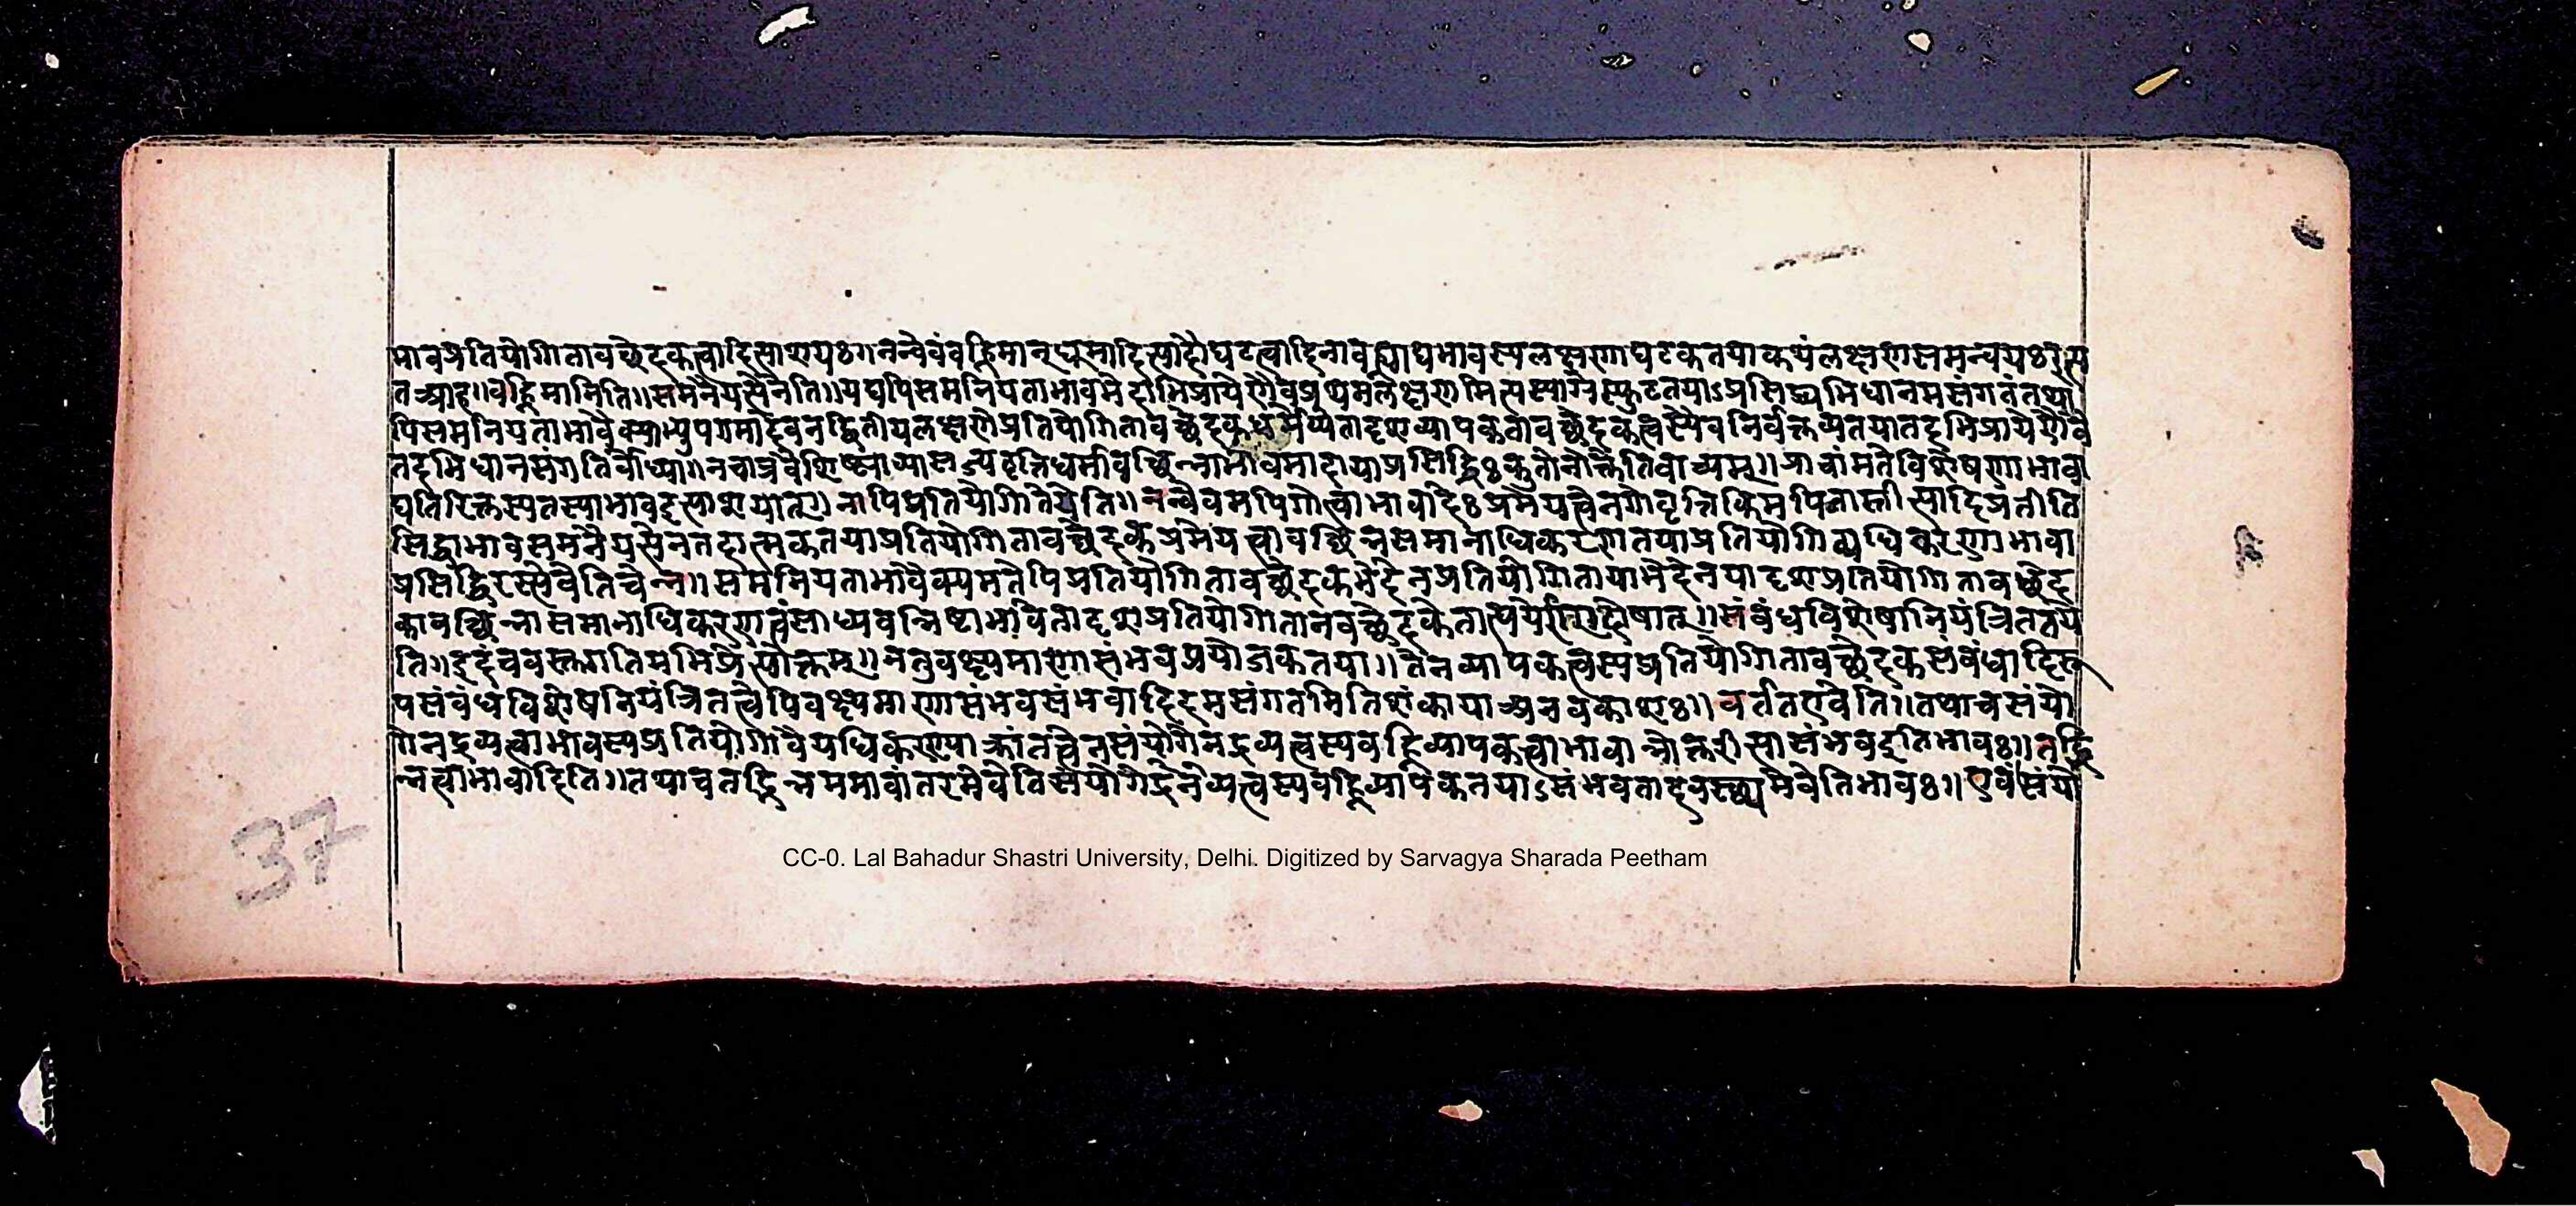 भावप्रतियोगितावच्छेदकत्वादित्याशयः ननन्वेवंवह्निमान्धूमादित्यादौघटत्वादिनावृत्त्याद्यभावस्यलक्षणाघटकतयाकथंलक्षणसमन्वयः
तआह॥वह्निमामिति॥समनैयत्येनेति॥यद्यपिसमनियताभावभेदाभिप्रायेणैवप्रथमलक्षणमित्यस्याग्रेस्फुटतयाऽप्रसिद्ध्यभिधानमसंगतंतथा
पिसमनियताभावैक्याभ्युपगमादेवनद्वितीयलक्षणेप्रतियोगितावच्छेदक तादृशव्यापकतावच्छेदकत्वस्यैवनिर्वक्तव्यतयातदभिप्रायेणैवै
तदभिधानसंगतिर्बोध्या॥नचात्रवैशिष्ट्यव्यासज्यवृत्तिधर्मावच्छिन्नाभावमादायाप्रसिद्धिःकुतोनोक्तेतिवाच्यम्॥प्राचांमतेविशेषणाभावा
द्यतिरिक्तस्यतस्याभावइत्याशयात्॥नापिप्रतियोगितेयेति॥नन्वेवमपिगोत्वाभावादेःप्रमेयत्वेनगोवृत्तिकिमपिनास्तीत्यादिप्रतीति
सिद्धाभावसमनैयत्येनतदात्मकतयाप्रतियोगितावच्छेदकप्रमेयत्वावच्छिन्नसमानाधिकरणतयाप्रतियोगिव्यधिकरणाभावा
प्रसिद्धिरस्त्येवेतिचेन्न॥समनियताभावैक्यमतेपिप्रतियोगितावच्छेदकभेदेनप्रतियोगितायाभेदेनयादृशप्रतियोगितावच्छेद
कावच्छिन्नासमानाधिकरणत्वंसाध्यवन्निष्ठाभावेतादृशप्रतियोगितानवच्छेदकेतात्पर्य ॥संबंधविशेषानियंत्रिततये
ति॥इदंचवस्तुगतिमभिप्रेत्योक्तम्॥नतुवक्ष्यमाणासंभवप्रयोजकतया॥तेनव्यापकत्वस्यप्रतियोगितावच्छेदकसंबंधादिरू
पसंबंधविशेषनियंत्रितत्वेपिवक्ष्यमाणासंभवसंभवादिदमसंगतमितिशंकायाअनवकाशः॥वर्ततएवेति॥तथाचसंयो
गेनद्रव्यत्वाभावस्यप्रतियोगिवैयधिकरण्याक्रांतत्वेनसंयोगेनद्रव्यत्वस्यवह्निव्यापकत्वाभावान्नोक्तरीत्यासंभवइतिभावः॥तद्भि
न्नत्वाभावादिति॥तथाचतद्भिन्नमभावांतरमेवेतिसंयोगेद्रनव्यत्वस्यवह्निव्यापकतयाऽसंभवतादवस्थ्यमेवेतिभावः॥एवंसंयो
37
CC-0. Lal Bahadur Shastri University, Delhi. Digitized by Sarvagya Sharada Peetham